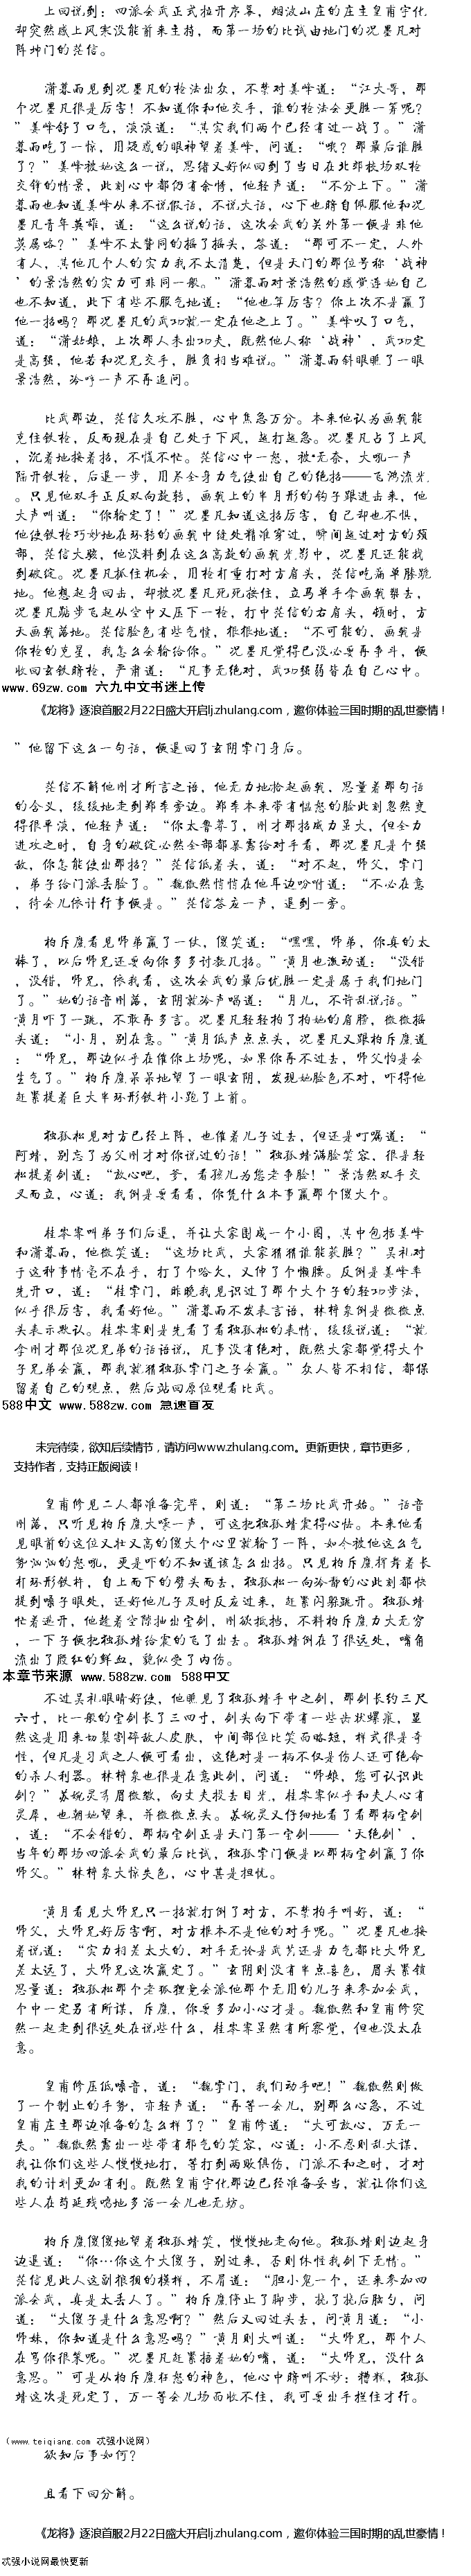 上回说到：四派会武正式拉开序幕，烟波山庄的庄主皇甫宇化
却突然感上风寒没能前来主持，而第一场的比试由地门的况墨凡对
阵坤门的茫信。
潇暮雨见到况墨凡的枪法出众，不禁对姜峰道：“江大哥，那
个况墨凡很是厉害！不知道你和他交手，谁的枪法会更胜一筹呢？
”姜峰舒了口气，淡淡道：“其实我们两个已经有过一战了。”潇
暮雨吃了一惊，用疑惑的眼神望着姜峰，问道：“哦？那最后谁胜
了？”姜峰被她这么一说，思绪又好似回到了当日在北郊校场双枪
交锋的情景，此刻心中都仍有余悸，他轻声道：“不分上下。”潇
暮雨也知道姜峰从来不说假话，不说大话，心下也暗自佩服他和况
墨凡青年英雄，道：“这么说的话，这次会武的另外第一便是非他
莫属咯？”姜峰不太赞同的摇了摇头，答道：“那可不一定，人外
有人，其他几个人的实力我不太清楚，但是天门的那位号称‘战神
’的景浩然的实力可非同一般。”潇暮雨对景浩然的感觉连她自己
也不知道，此下有些不服气地道：“他也算厉害？你上次不是赢了
他一招吗？那况墨凡的武功就一定在他之上了。”姜峰叹了口气，
道：“潇姑娘，上次那人未出功夫，既然他人称‘战神’，武功定
是高强，他若和况兄交手，胜负相当难说。”潇暮雨斜眼瞅了一眼
景浩然，冷哼一声不再追问。
比武那边，茫信久攻不胜，心中焦急万分。本来他认为画戟能
克住铁枪，反而现在是自己处于下风，越打越急。况墨凡占了上风
，沉着地接着招，不慌不忙。茫信心中一怒，被逼无奈，大吼一声
隔开铁枪，后退一步，用尽全身力气使出自己的绝招——飞鸿流光
。只见他双手正反双向旋转，画戟上的半月形的钩子跟进击来，他
大声叫道：“你输定了！”况墨凡知道这招厉害，自己却也不惧，
他使铁枪巧妙地在环转的画戟中缝处精准穿过，瞬间越过对方的颈
部，茫信大骇，他没料到在这么高旋的画戟光影中，况墨凡还能找
到破绽。况墨凡抓住机会，用枪杆重打对方肩头，茫信吃痛单膝跪
地。他想起身回击，却被况墨凡死死按住，立马单手拿画戟袭去，
况墨凡踮步飞起从空中又压下一枪，打中茫信的右肩头，顿时，方
天画戟落地。茫信脸色有些气愤，狠狠地道：“不可能的，画戟是
你枪的克星，我怎么会输给你。”况墨凡觉得已没必要再争斗，便
收回玄铁暗枪，严肃道：“凡事无绝对，武功强弱皆在自己心中。
www.69zw.com 六九中文书迷上传
《龙将》逐浪首服2月22日盛大开启lj.zhulang.com，邀你体验三国时期的乱世豪情！
”他留下这么一句话，便退回了玄阴掌门身后。
茫信不解他刚才所言之语，他无力地拾起画戟，思量着那句话
的含义，缓缓地走到郑季旁边。郑季本来带有愠怒的脸此刻忽然变
得很平淡，他轻声道：“你太鲁莽了，刚才那招威力虽大，但全力
进攻之时，自身的破绽必然全部都暴露给对手看，那况墨凡是个强
敌，你怎能使出那招？”茫信低着头，道：“对不起，师父，掌门
，弟子给门派丢脸了。”魏傲然悄悄在他耳边吩咐道：“不必在意
，待会儿依计行事便是。”茫信答应一声，退到一旁。
柏斥麾看见师弟赢了一仗，傻笑道：“嘿嘿，师弟，你真的太
棒了，以后师兄还要向你多多讨教几招。”黄月也激动道：“没错
，没错，师兄，依我看，这次会武的最后优胜一定是属于我们地门
了。”她的话音刚落，玄阴就冷声喝道：“月儿，不许乱说话。”
黄月吓了一跳，不敢再多言。况墨凡轻轻拍了拍她的肩膀，微微摇
头道：“小月，别在意。”黄月低声点点头，况墨凡又跟柏斥麾道
：“师兄，那边似乎在催你上场呢，如果你再不过去，师父怕是会
生气了。”柏斥麾呆呆地望了一眼玄阴，发现她脸色不对，吓得他
赶紧提着巨大半环形铁杵小跑了上前。
独孤松见对方已经上阵，也催着儿子过去，但还是叮嘱道：“
阿靖，别忘了为父刚才对你说过的话！”独孤靖满脸笑容，很是轻
松提着剑道：“放心吧，爹，看孩儿为您老争脸！”景浩然双手交
叉而立，心道：我倒是要看看，你凭什么本事赢那个傻大个。
桂零零叫弟子们后退，并让大家围成一个小圈，其中包括姜峰
和潇暮雨，他微笑道：“这场比武，大家猜猜谁能获胜？”吴礼对
于这种事情毫不在乎，打了个哈欠，又伸了个懒腰。反倒是姜峰率
先开口，道：“桂掌门，昨晚我见识过了那个大个子的轻功步法，
似乎很厉害，我看好他。”潇暮雨不发表言语，林梓泉倒是微微点
头表示默认。桂零零则是先看了看独孤松的表情，缓缓说道：“就
拿刚才那位况兄弟的话语说，凡事没有绝对，既然大家都觉得大个
子兄弟会赢，那我就猜独孤掌门之子会赢。”众人皆不相信，都保
留着自己的观点，然后站回原位观看比武。
588中文 www.588zw.com 急速首发
未完待续，欲知后续情节，请访问www.zhulang.com。更新更快，章节更多，
支持作者，支持正版阅读！
皇甫修见二人都准备完毕，则道：“第二场比武开始。”话音
刚落，只听见柏斥麾大喊一声，可这把独孤靖震得心怯。本来他看
见眼前的这位又壮又高的傻大个心里就输了一阵，如今被他这么气
势汹汹的怒吼，更是吓的不知道该怎么出招。只见柏斥麾挥舞着长
杆环形铁杵，自上而下的劈头而去，独孤松一向冷静的心此刻都快
提到嗓子眼处，还好他儿子及时反应过来，赶紧闪躲跳开。独孤靖
忙着逃开，他趁着空隙抽出宝剑，刚欲抵挡，不料柏斥麾力大无穷
，一下子便把独孤靖给震的飞了出去。独孤靖倒在了很远处，嘴角
流出了殷红的鲜血，貌似受了内伤。
本章节来源 www.588zw.com 588中文
不过吴礼眼睛好使，他瞅见了独孤靖手中之剑，那剑长约三尺
六寸，比一般的宝剑长了三四寸，剑头向下带有一些齿状螺旋，显
然这是用来切裂割碎敌人皮肤，中间部位比笑而略短，样式很是奇
怪，但凡是习武之人便可看出，这绝对是一柄不仅是伤人还可绝命
的杀人利器。林梓泉也很是在意此剑，问道：“师娘，您可认识此
剑？”苏婉灵秀眉微皱，向丈夫投去目光，桂零零似乎和夫人心有
灵犀，也朝她望来，并微微点头。苏婉灵又仔细地看了看那柄宝剑
，道：“不会错的，那柄宝剑正是天门第一宝剑——‘天绝剑’，
当年的那场四派会武的最后比试，独孤掌门便是以那柄宝剑赢了你
师父。”林梓泉大惊失色，心中甚是担忧。
黄月看见大师兄只一招就打倒了对方，不禁拍手叫好，道：“
师父，大师兄好厉害啊，对方根本不是他的对手呢。”况墨凡也接
着说道：“实力相差太大的，对手无论是武艺还是力气都比大师兄
差太远了，大师兄这次赢定了。”玄阴则没有半点喜色，眉头紧锁
思量道：独孤松那个老狐狸竟会派他那个无用的儿子来参加会武，
个中一定另有所谋，斥麾，你要多加小心才是。魏傲然和皇甫修突
然一起走到很远处在说些什么，桂零零虽然有所察觉，但也没太在
意。
皇甫修压低嗓音，道：“魏掌门，我们动手吧！”魏傲然则做
了一个制止的手势，亦轻声道：“再等一会儿，别那么心急，不过
皇甫庄主那边准备的怎么样了？”皇甫修道：“大可放心，万无一
失。”魏傲然露出一些带有邪气的笑容，心道：小不忍则乱大谋，
我让你们这些人慢慢地打，等打到两败俱伤，门派不和之时，才对
我的计划更加有利。既然皇甫宇化那边已经准备妥当，就让你们这
些人在苟延残喘地多活一会儿也无妨。
柏斥麾傻傻地望着独孤靖笑，慢慢地走向他。独孤靖则边起身
边退道：“你…你这个大傻子，别过来，否则休怪我剑下无情。”
茫信见此人这副狼狈的模样，不屑道：“胆小鬼一个，还来参加四
派会武，真是太丢人了。”柏斥麾停止了脚步，挠了挠后脑勺，问
道：“大傻子是什么意思啊？”然后又回过头去，问黄月道：“小
师妹，你知道是什么意思吗？”黄月则大叫道：“大师兄，那个人
在骂你很笨呢。”况墨凡赶紧捂着她的嘴，道：“大师兄，没什么
意思。”可是从柏斥麾狂怒的神色，他心中暗叫不妙：糟糕，独孤
靖这次是死定了，万一等会儿场面收不住，我可要出手拦住才行。
（www.teiqiang.com 忒强小说网）
欲知后事如何？
且看下回分解。
《龙将》逐浪首服2月22日盛大开启lj.zhulang.com，邀你体验三国时期的乱世豪情！
忒强小说网最快更新